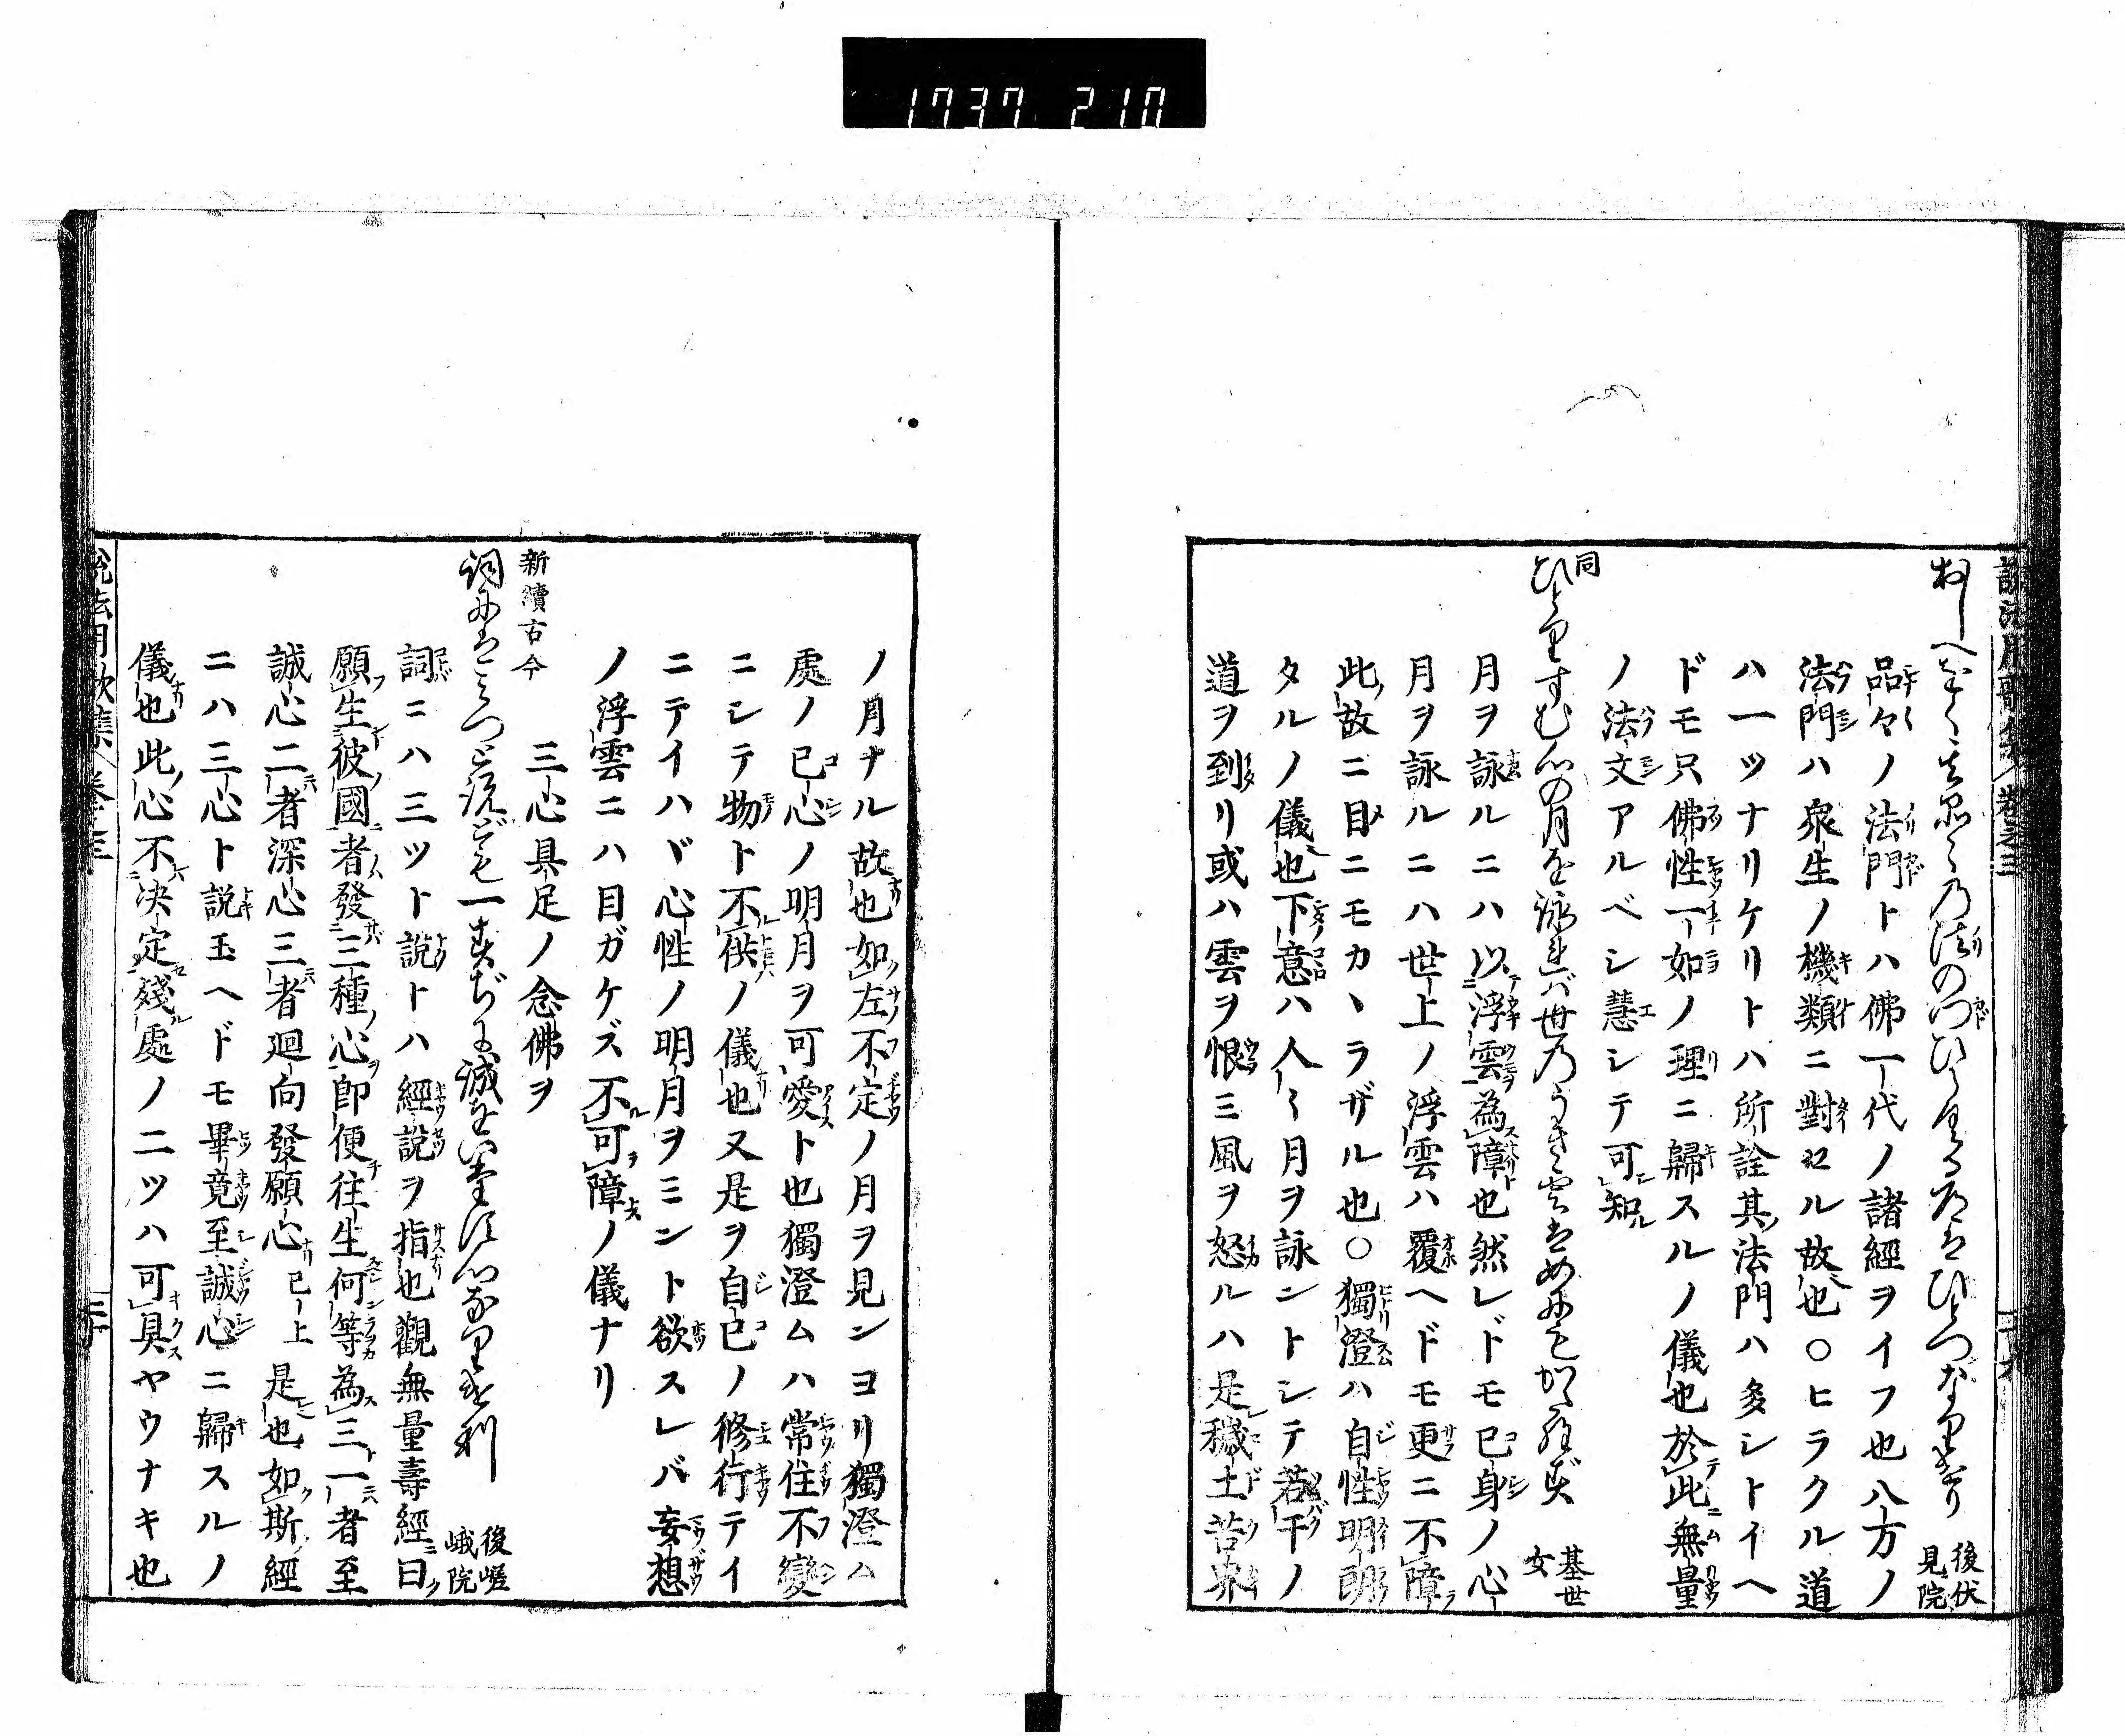 1737 210
説法用歌集 卷之三
後伏見院
品々ノ法門トハ佛一代ノ諸經ヲイフ也八方ノ
法門ハ衆生ノ機類ニ對セル故也〇ヒラクル道
ハ一ツナリケリトハ所詮其法門ハ多シトイヘ
ドモ只佛性一如ノ理ニ歸スルノ儀也於此無量
ノ法文アルベシ慧シテ可知
同
ひとりすむ心の月を詠れば世のうき雲はめにもかゝらず 基世女
月ヲ詠ルニハ以浮雲為障也然レドモ已身ノ心
月ヲ詠ルニハ世上ノ浮雲ハ覆ヘドモ更ニ不障
此故ニ目ニモカヽラザル也〇獨澄ハ自性明朗
タルノ儀也下意ハ人々月ヲ詠ントシテ若干ノ
道ヲ到リ或ハ雲ヲ恨ミ風ヲ怒ルハ是穢土苦界
ノ月ナル故也如左不定ノ月ヲ見ンヨリ獨澄ム
處ノ已心ノ明月ヲ可愛ト也獨澄ムハ常住不變
ニシテ物ト不供ノ儀也又是ヲ自已ノ修行テイ
ニテイハヾ心性ノ明月ヲミント欲スレバ妄想
ノ浮雲ニハ目ガケズ不可障ノ儀ナリ
新續古今
三心具足ノ念佛ヲ
詞にはみつと説ども一すぢに誠をいたす心なりけり 後嵯峨院
詞ニハ三ツト說トハ經說ヲ指也觀無量壽經ニ曰
願生彼國者發三種心即便往生何等為三一者至
誠心二者深心三者廻向發願心已上是也如斯經
ニハ三心ト說玉ヘドモ畢竟至誠心ニ歸スルノ
儀也此心不決定殘處ノ二ツハ可具ヤウナキ也
説法用歌集 卷之三